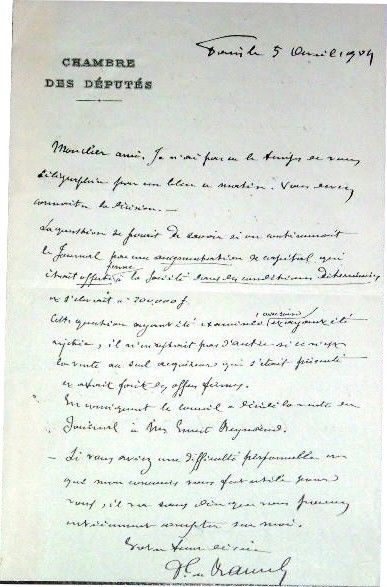 CHAMBRE
DES DÉPUTÉS
Paris le 5 Avril 1904
Mon cher ami. Je n'ai pas eu le temps de vous
télégraphier par un bleu ce matin. Vous devez
connaître la décision. —
La question se posait de savoir si on continuerait
le Journal par une augmentation de capital qui
était offerte à la Société dans des conditions déterminées
et s'élevait à 200,000 f
Cette question ayant été examinée et ayant été
rejetée, il n'en restait pas d'autre si ce n'est
la vente au seul acquéreur qui s'était présenté
et avait fait des offres fermes.
En conséquent le conseil a décidé la vente du
Journal à Mr Ernest
— Si vous aviez une difficulté personnelle en
que mon concours vous fut utile pour
vous, il va sans dire que vous pouvez
entièrement compter sur moi.
Votre bien